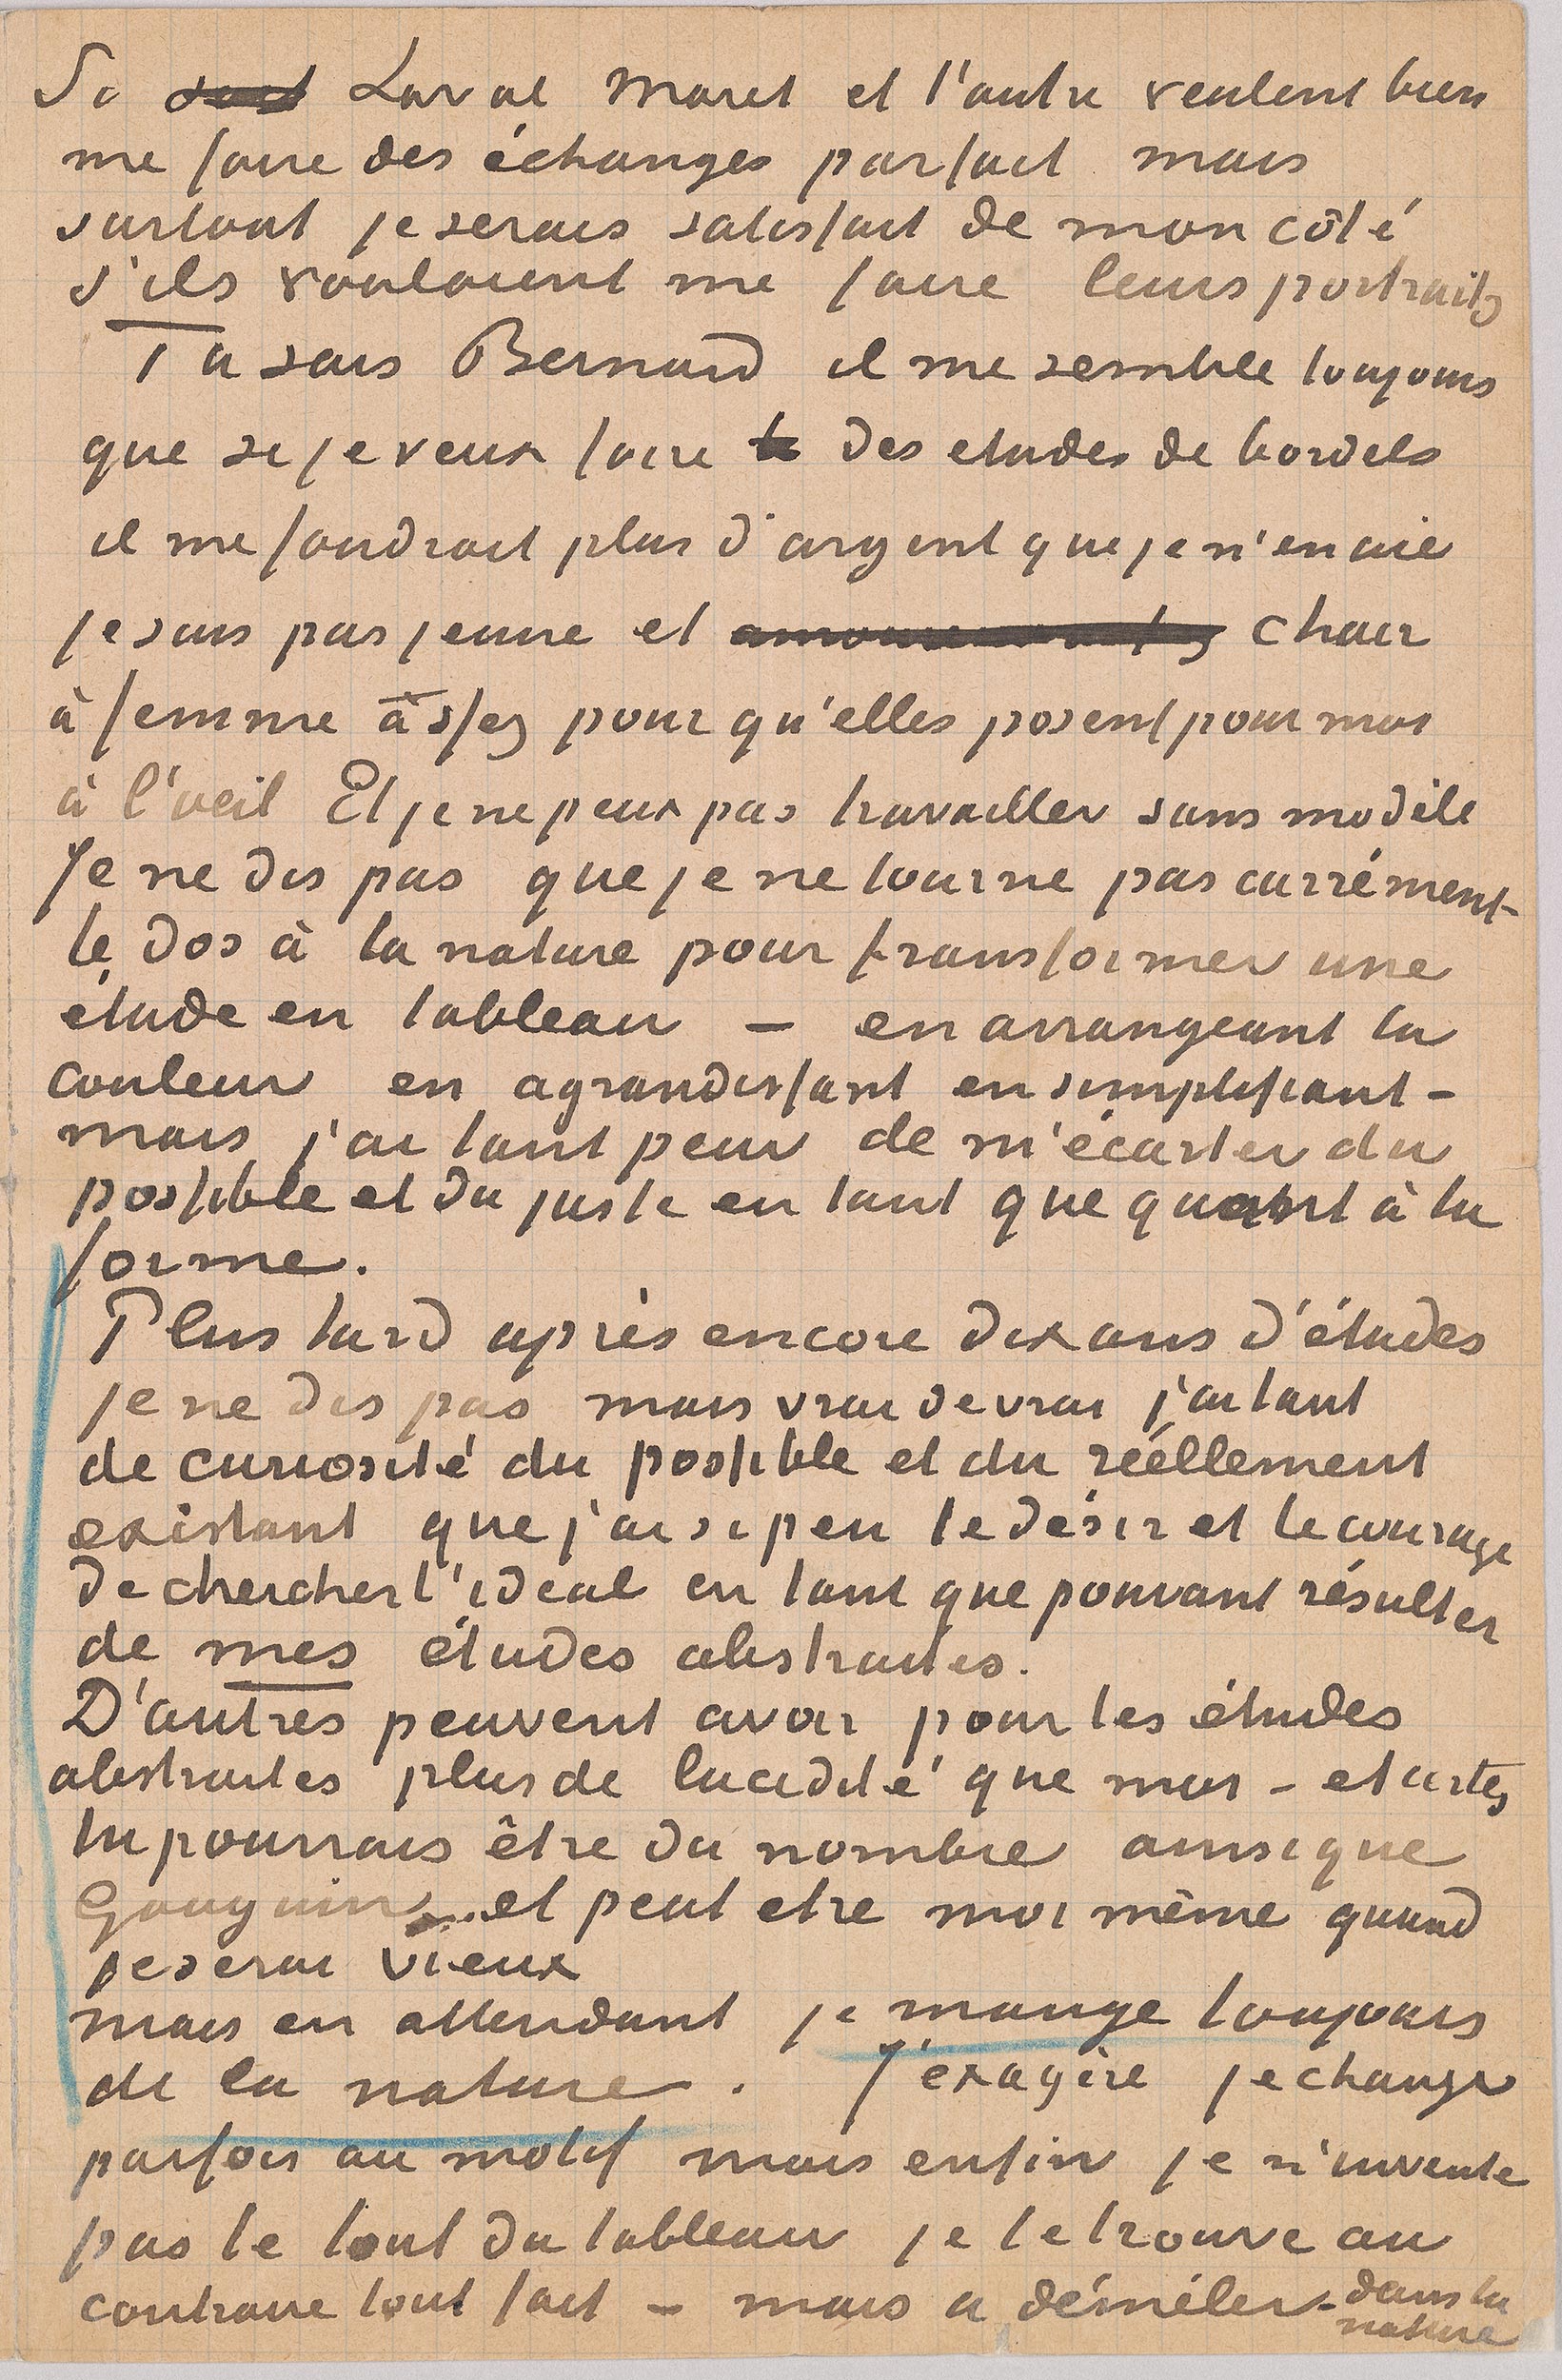 Si Laval Moret et l'autre veulent bien
me faire des échanges parfait mais
surtout je serais satisfait de mon côté
s'ils voulaient me faire leurs portraits
Tu sais Bernard il me semble toujours
que si je veux faire des etudes de bordels
il me faudrait plus d'argent que je n'en aie
je suis pas jeune et chair
à femme assez pour qu'elles posent pour moi
à l'oeil Et je ne peux pas travailler sans modèle
Je ne dis pas que je ne tourne pas carrément
le dos à la nature pour transformer une
étude en tableau – en arrangeant la
couleur en agrandissant en simplifiant –
mais j'ai tant peur de m'écarter du
possible et du juste en tant que quant à la
forme.
Plus tard après encore dix ans d'études
je ne dis pas mais vrai de vrai j'ai tant
de curiosité du possible et du réellement
existant que j'ai si peu le désir et le courage
de chercher l'idéal en tant que pouvant résulter
de mes études abstraites.
D'autres peuvent avoir pour les études
abstraites plus de lucidité que moi – et certes
tu pourrais être du nombre ainsi que
Gauguin et peut etre moi même quand
je serai vieux
mais en attendant je mange toujours
de la nature. J'exagère je change
parfois au motif mais enfin je n'invente
pas le tout du tableau je le trouve au
contraire tout fait – mais a démêler – dans la
nature